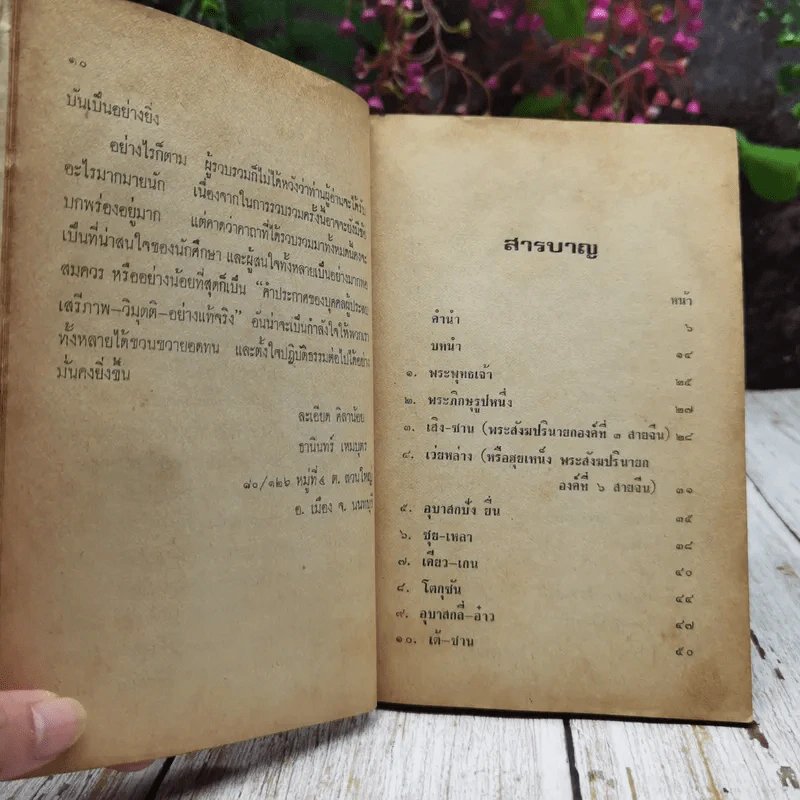 ๑๐
บันเป็นอย่างยิ่ง
อย่างไรก็ตาม ผู้รวบรวมก็ไม่ได้หวังว่าท่านผู้อ่านจะได้รับ
อะไรมากมายนัก เนื่องจากในการรวบรวมครั้งนี้อาจจะยังมีข้อ
บกพร่องอยู่มาก แต่คาดว่าคาถาที่ได้รวบรวมมาทั้งหมดนี้คงจะ
เป็นที่น่าสนใจของนักศึกษา และผู้สนใจทั้งหลายเป็นอย่างมากพอ
สมควร หรืออย่างน้อยที่สุดก็เป็น “คำประกาศของบุคคลผู้ประสบ
เสรีภาพ–วิมุตติ–อย่างแท้จริง” อันน่าจะเป็นกำลังใจให้พวกเรา
ทั้งหลายได้ขวนขวายอดทน และตั้งใจปฏิบัติธรรมต่อไปได้อย่าง
มั่นคงยิ่งขึ้น
ละเอียด ศิลาน้อย
ธานินทร์ เหมบุตร
๘๐/๑๒๖ หมู่ที่ ๔ ต. สวนใหญ่
อ. เมือง จ. นนทบุรี
สารบาญ
หน้า
คำนำ ๖
บทนำ ๑๔
๑. พระพุทธเจ้า ๒๕
๒. พระภิกษุรูปหนึ่ง ๒๗
๓. เสิง–ซาน (พระสังฆปรินายกองค์ที่ ๓ สายจีน) ๒๘
๔. เว่ยหล่าง (หรือฮุยเหน็ง พระสังฆปรินายก
องค์ที่ ๖ สายจีน) ๓๑
๕. อุบาสกปัง ยิ่น ๓๕
๖. ซุย–เหลา ๓๘
๗. เคียว–เกน ๔๐
๘. โตกุซัน ๔๔
๙. อุบาสกลี่–อ๋าว ๔๗
๑๐. เต้–ซาน ๕๐